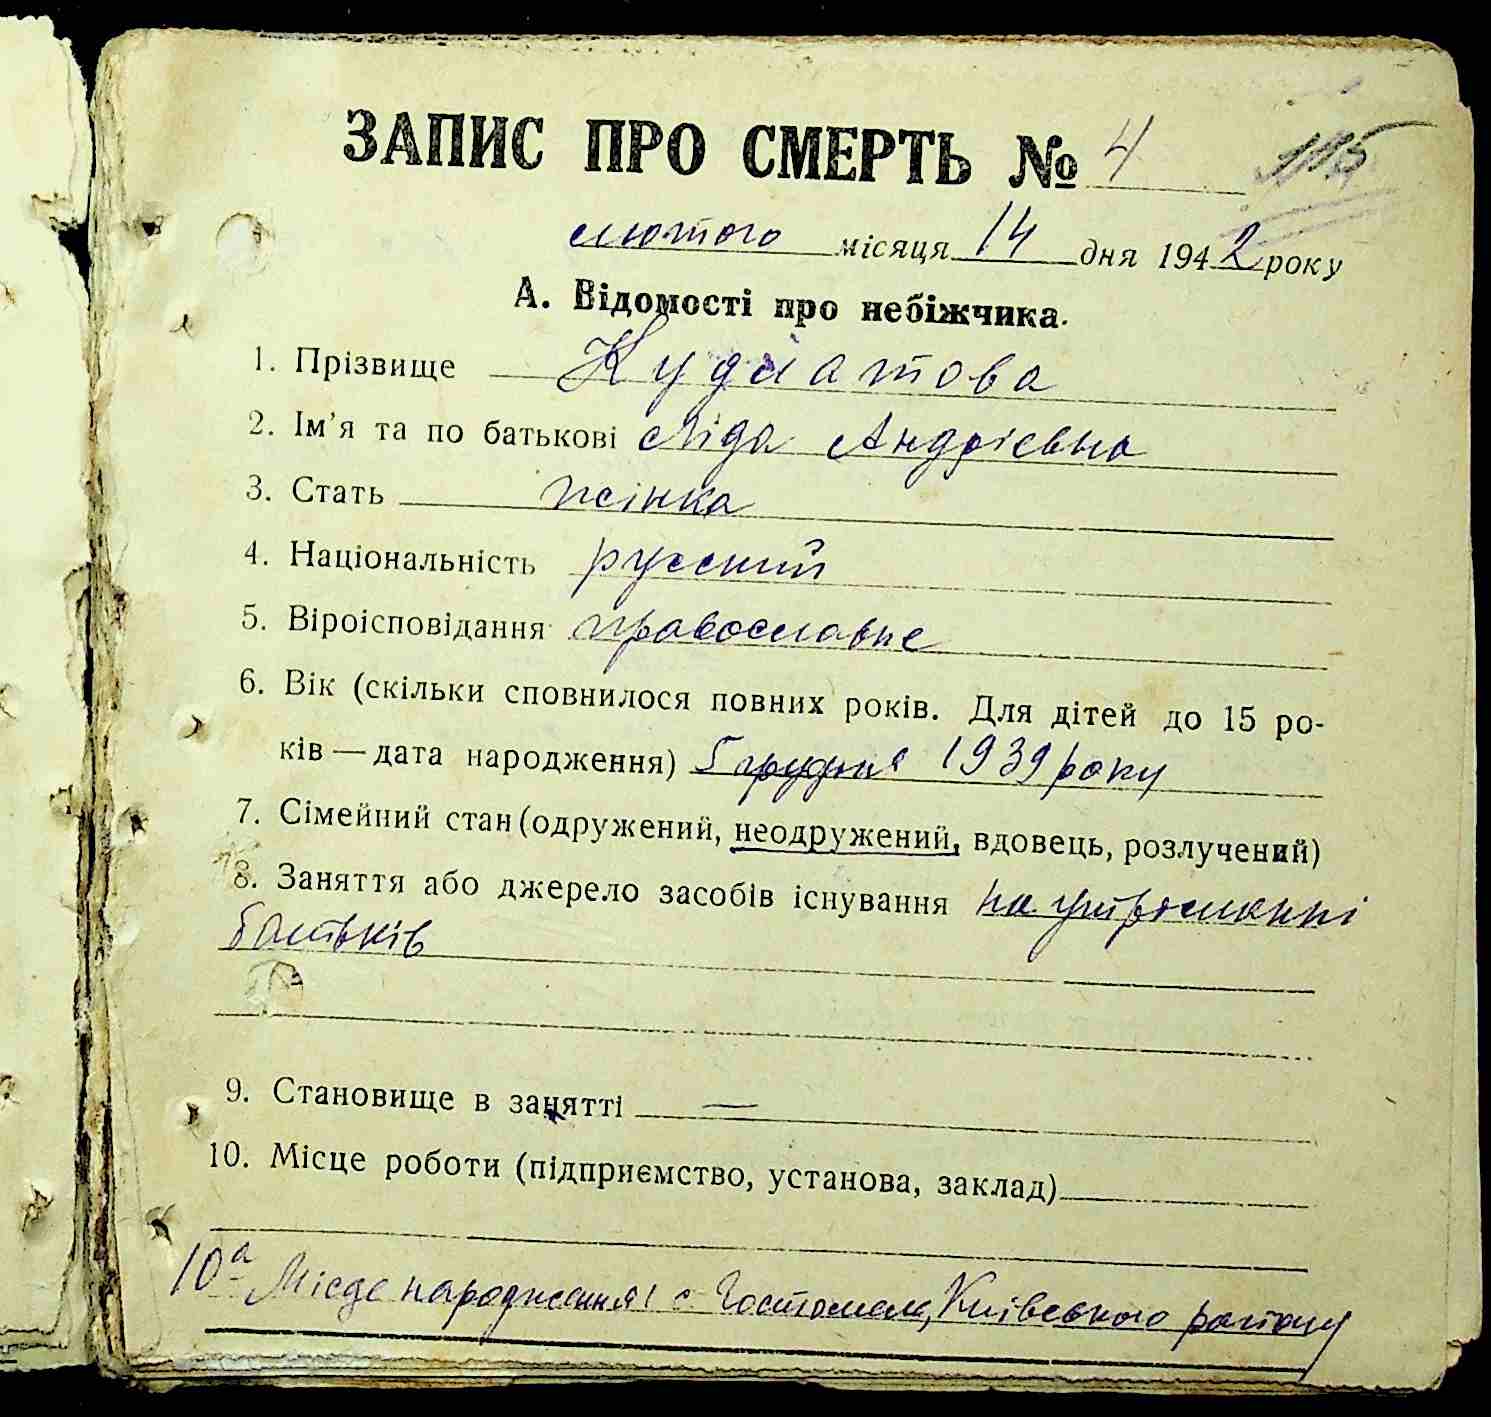 ЗАПИС ПРО СМЕРТЬ № 4 115
лютого місяця 14 дня 1942 року
А. Відомості про небіжчика.
1. Прізвище
2. Ім'я та по батькові Ліда Андрієвна
3. Стать жінка
4. Національність русский
5. Віроісповідання православне
6. Вік (скільки сповнилося повних років. Для дітей до 15 ро-
ків — дата народження) 5 грудня 1939 року
7. Сімейний стан (одружений, неодружений, вдовець, розлучений)
8. Заняття або джерело засобів існування на утриманні
батьків
9. Становище в занятті —
10. Місце роботи (підприємство, установа, заклад)
10а Місце народження: с. Гостомель, Київського району